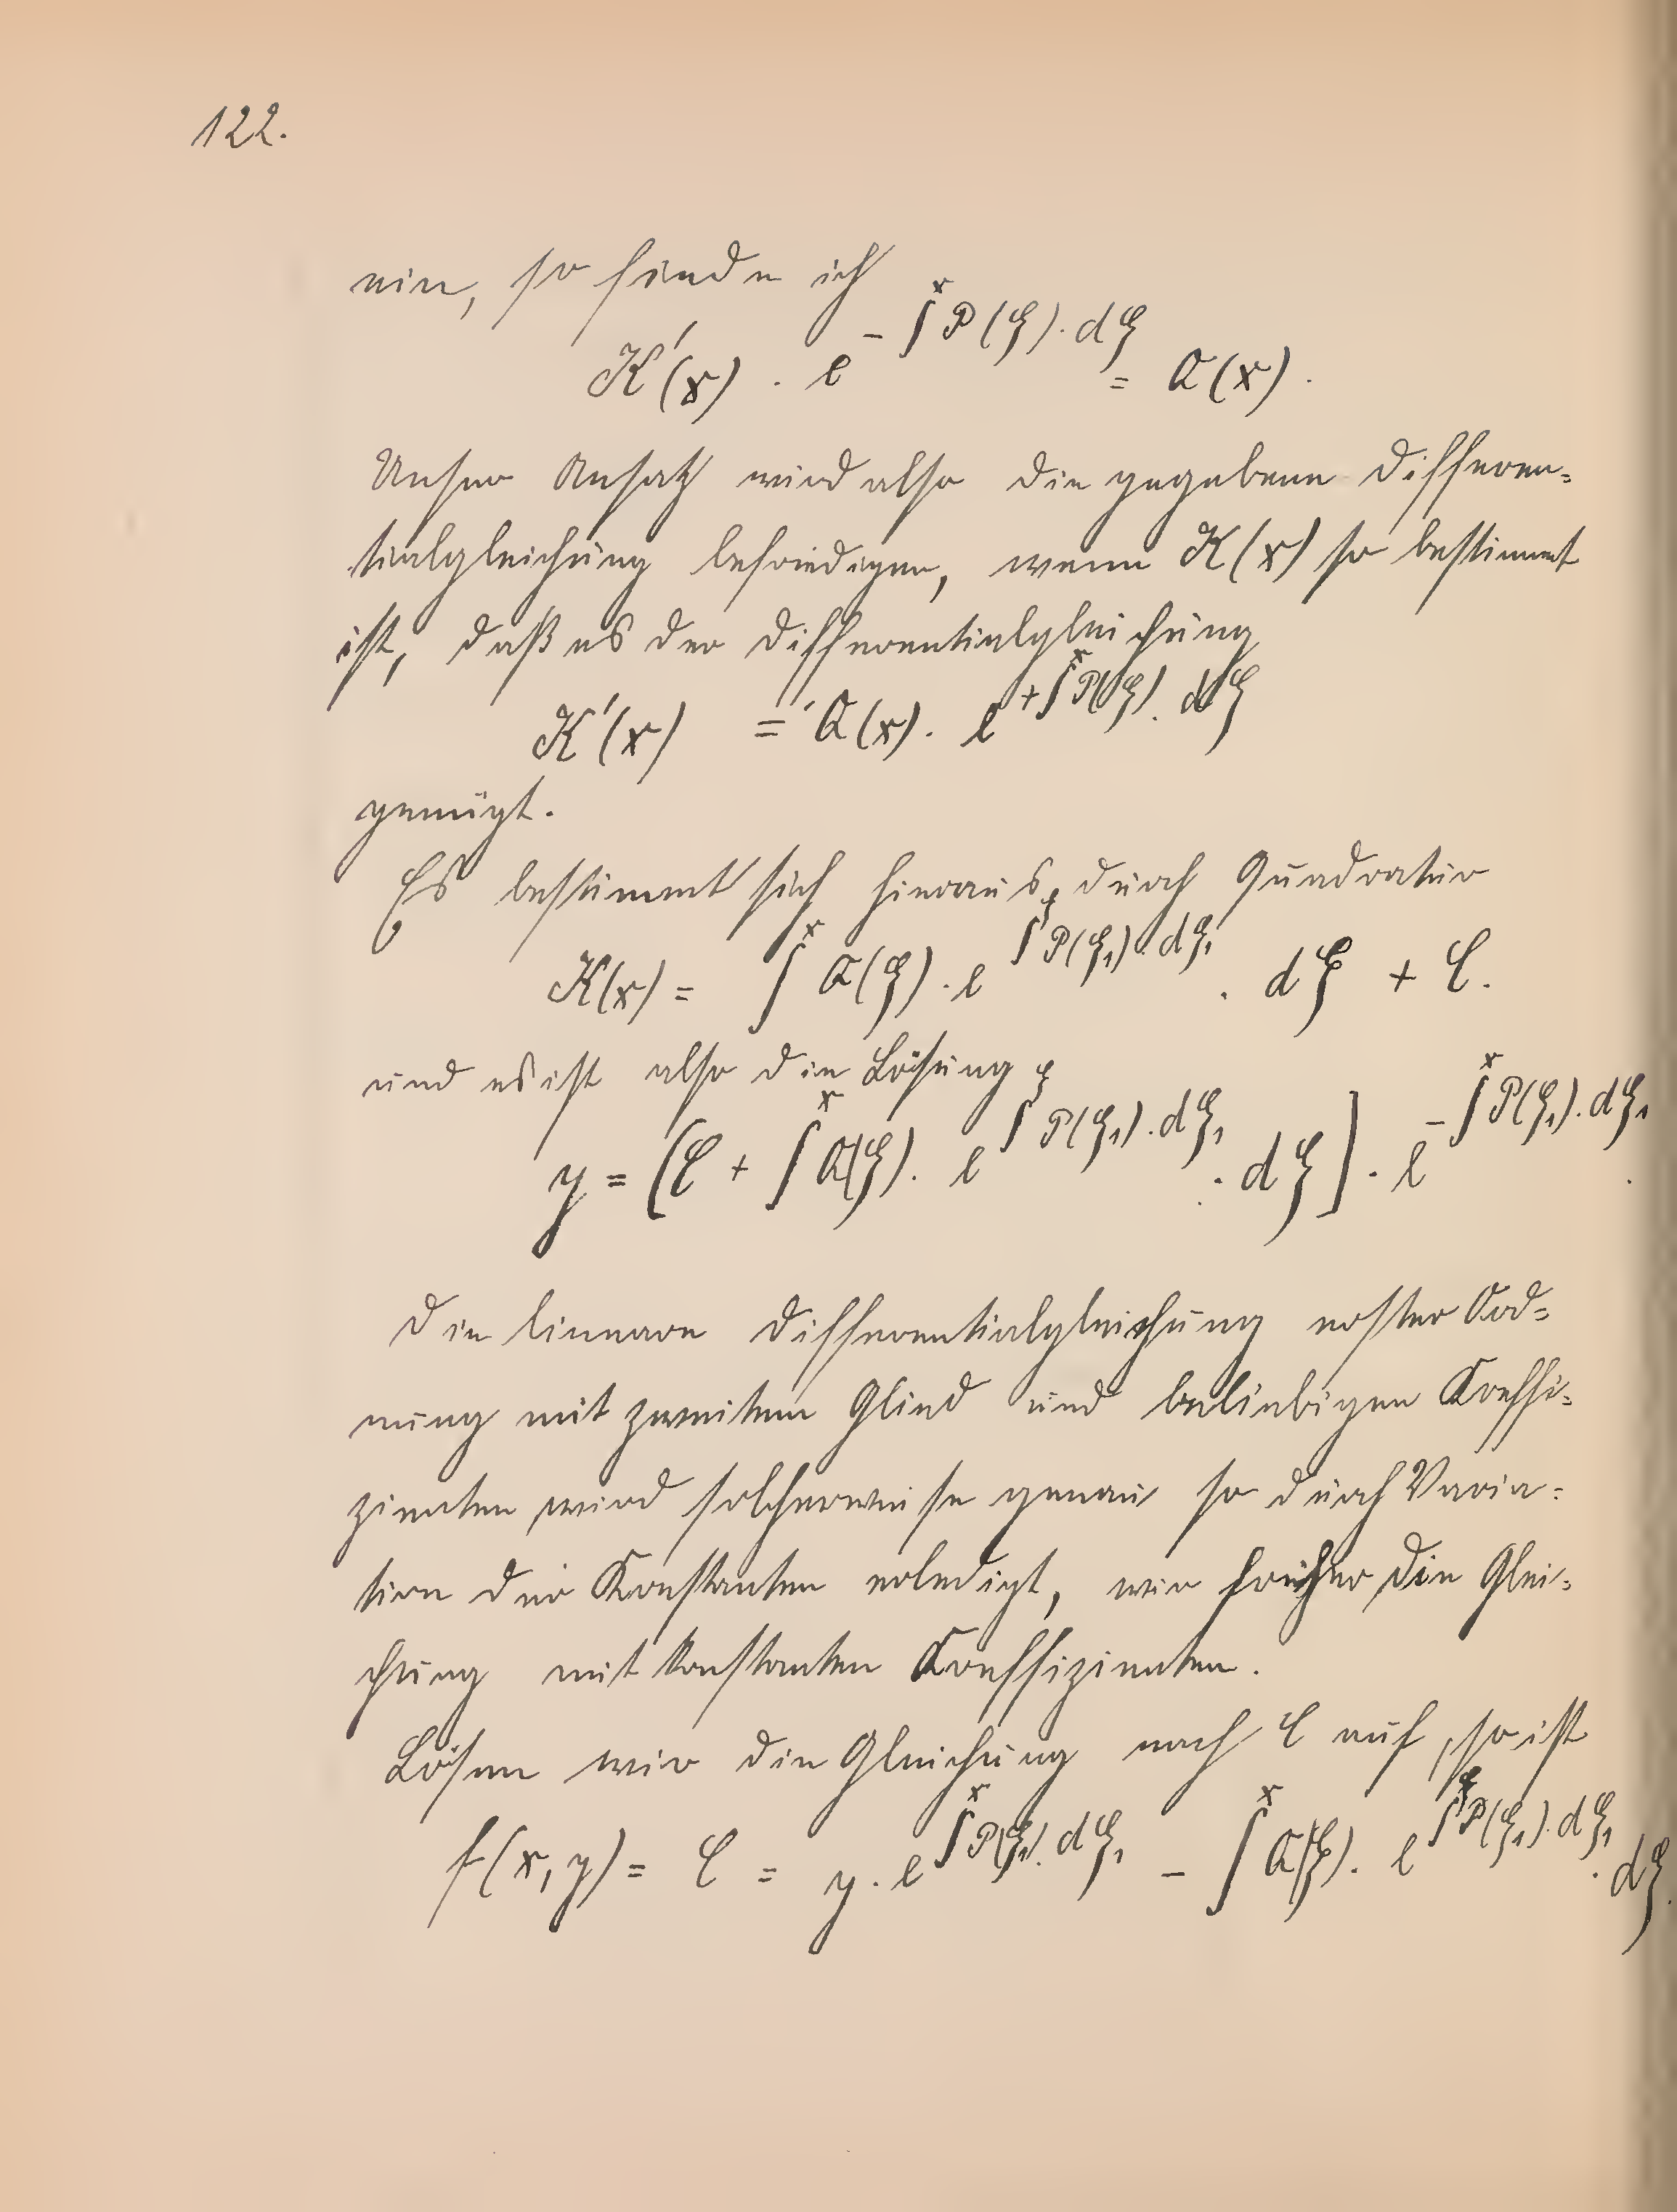 122.
ein, so finde ich
K'(x) · e^{-∫^x P(ξ)·dξ} = Q(x).
Unser Ansatz wird also die gegebene Differen-
tialgleichung befriedigen, wenn K(x) so bestimmt
ist, daß es der Differentialgleichung
K'(x) = Q(x) · e^{+∫^x P(ξ)·dξ}
genügt.
Es bestimmt sich hieraus durch Quadratur
K(x) = ∫^x Q(ξ) · e^{∫^ξ P(ξ₁)·dξ₁} · dξ + C.
und es ist also die Lösung
y = [C + ∫^x Q(ξ) · e^{∫^ξ P(ξ₁)·dξ₁} · dξ] · e^{-∫^x P(ξ₁)·dξ₁}.
Die lineare Differentialgleichung erster Ord-
nung mit zweitem Glied und beliebigen Koeffi-
zienten wird solcherweise genau so durch Varia-
tion der Konstanten erledigt, wie früher die Glei-
chung mit konstanten Koeffizienten.
Lösen wir die Gleichung nach C auf, so ist
f(x, y) = C = y · e^{∫^x P(ξ₁)·dξ₁} - ∫^x Q(ξ) · e^{∫^ξ P(ξ₁)·dξ₁} · dξ.